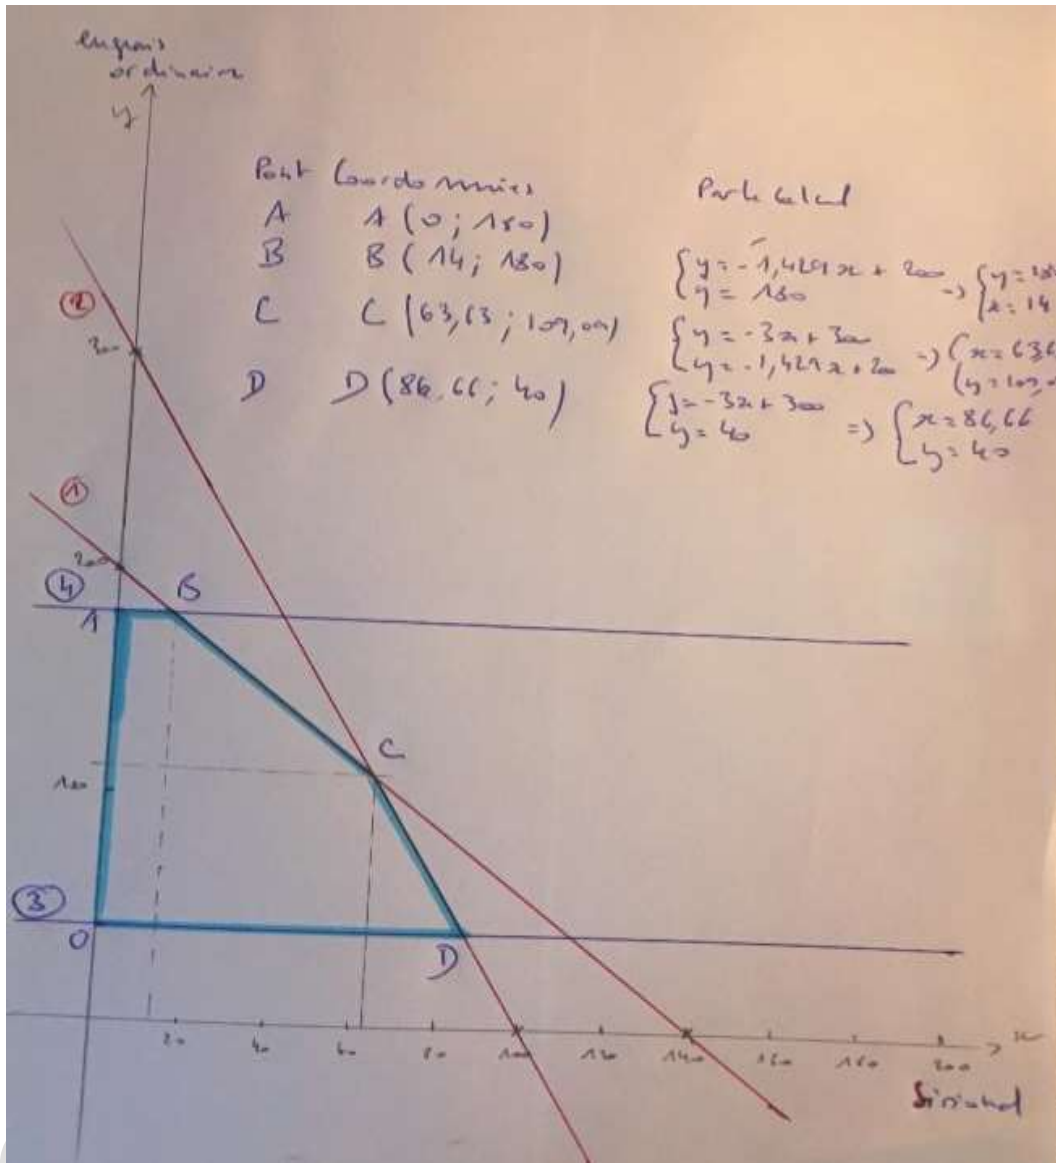 engrais
ordinaire
y
Point Coordonnées
A A (0; 180)
B B (14; 180)
C C (63,63; 109,09)
D D (86,66; 40)
Partie calcul
{y = -1,429x + 200
{y = 180
=> {y = 180
{x = 14
{y = -3x + 300
{y = -1,429x + 200
=> {x = 63,6
{y = 109,0
{y = -3x + 300
{y = 40
=> {x = 86,66
{y = 40
2
300
1
200
4
A
B
C
100
3
O
D
20
40
60
80
100
120
140
160
180
200
x